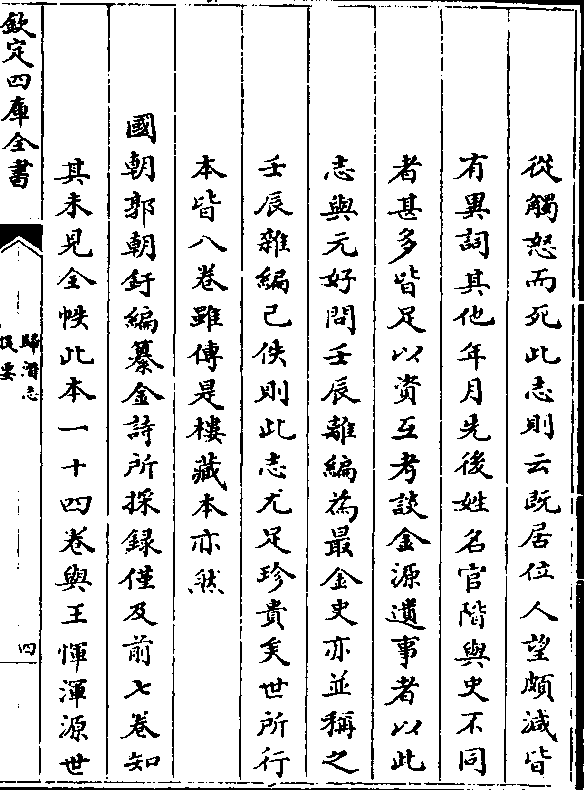 從觸怒而死此志則云既居位人望頗減皆
有異詞其他年月先後姓名官階與史不同
者甚多皆足以資互考談金源遺事者以此
志與元好問壬辰雜編為最金史亦並稱之
壬辰雜編已佚則此志尤足珍貴矣世所行
本皆八卷雖傳是樓藏本亦然
國朝郭朝釪編纂金詩所採録僅及前七卷知
其未見全帙此本一十四卷與王惲渾源世
欽定四庫全書
歸潛志
提要
四